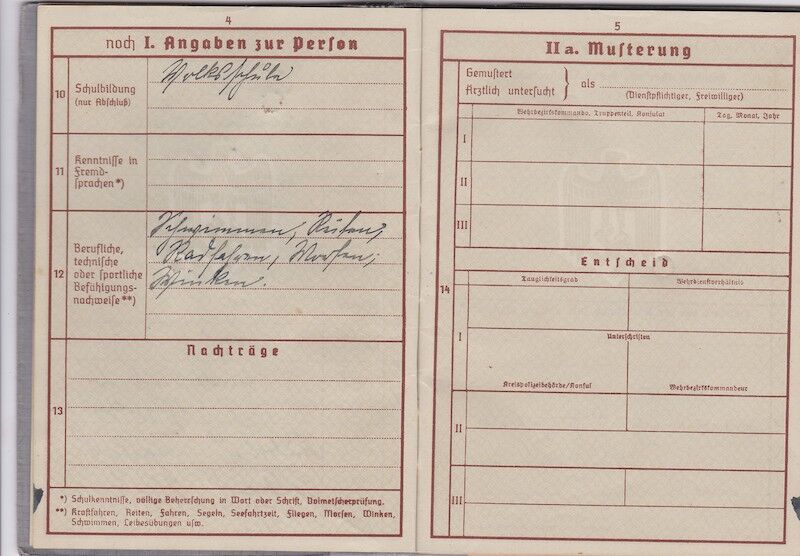 4
noch I. Angaben zur Person
10 Schulbildung
(nur Abschluß)
Volksschule
11 Kenntnisse in
Fremd-
sprachen*)
12 Berufliche,
technische
oder sportliche
Befähigungs-
nachweise**)
Schwimmen, Reiten,
Radfahren, Morsen,
Winken.
Nachträge
13
*) Schulkenntnisse, völlige Beherrschung in Wort oder Schrift, Dolmetscherprüfung.
**) Kraftfahren, Reiten, Fahren, Segeln, Seefahrtzeit, Fliegen, Morsen, Winken,
Schwimmen, Leibesübungen usw.
5
II a. Musterung
Gemustert
Ärztlich untersucht } als
(Dienstpflichtiger, Freiwilliger)
Wehrbezirkskommando, Truppenteil, Konsulat
Tag, Monat, Jahr
I
II
III
Entscheid
14
Tauglichkeitsgrad
Wehrdienstverhältnis
I
Unterschriften
Kreispolizeibehörde/Konsul
Wehrbezirkskommandeur
II
III